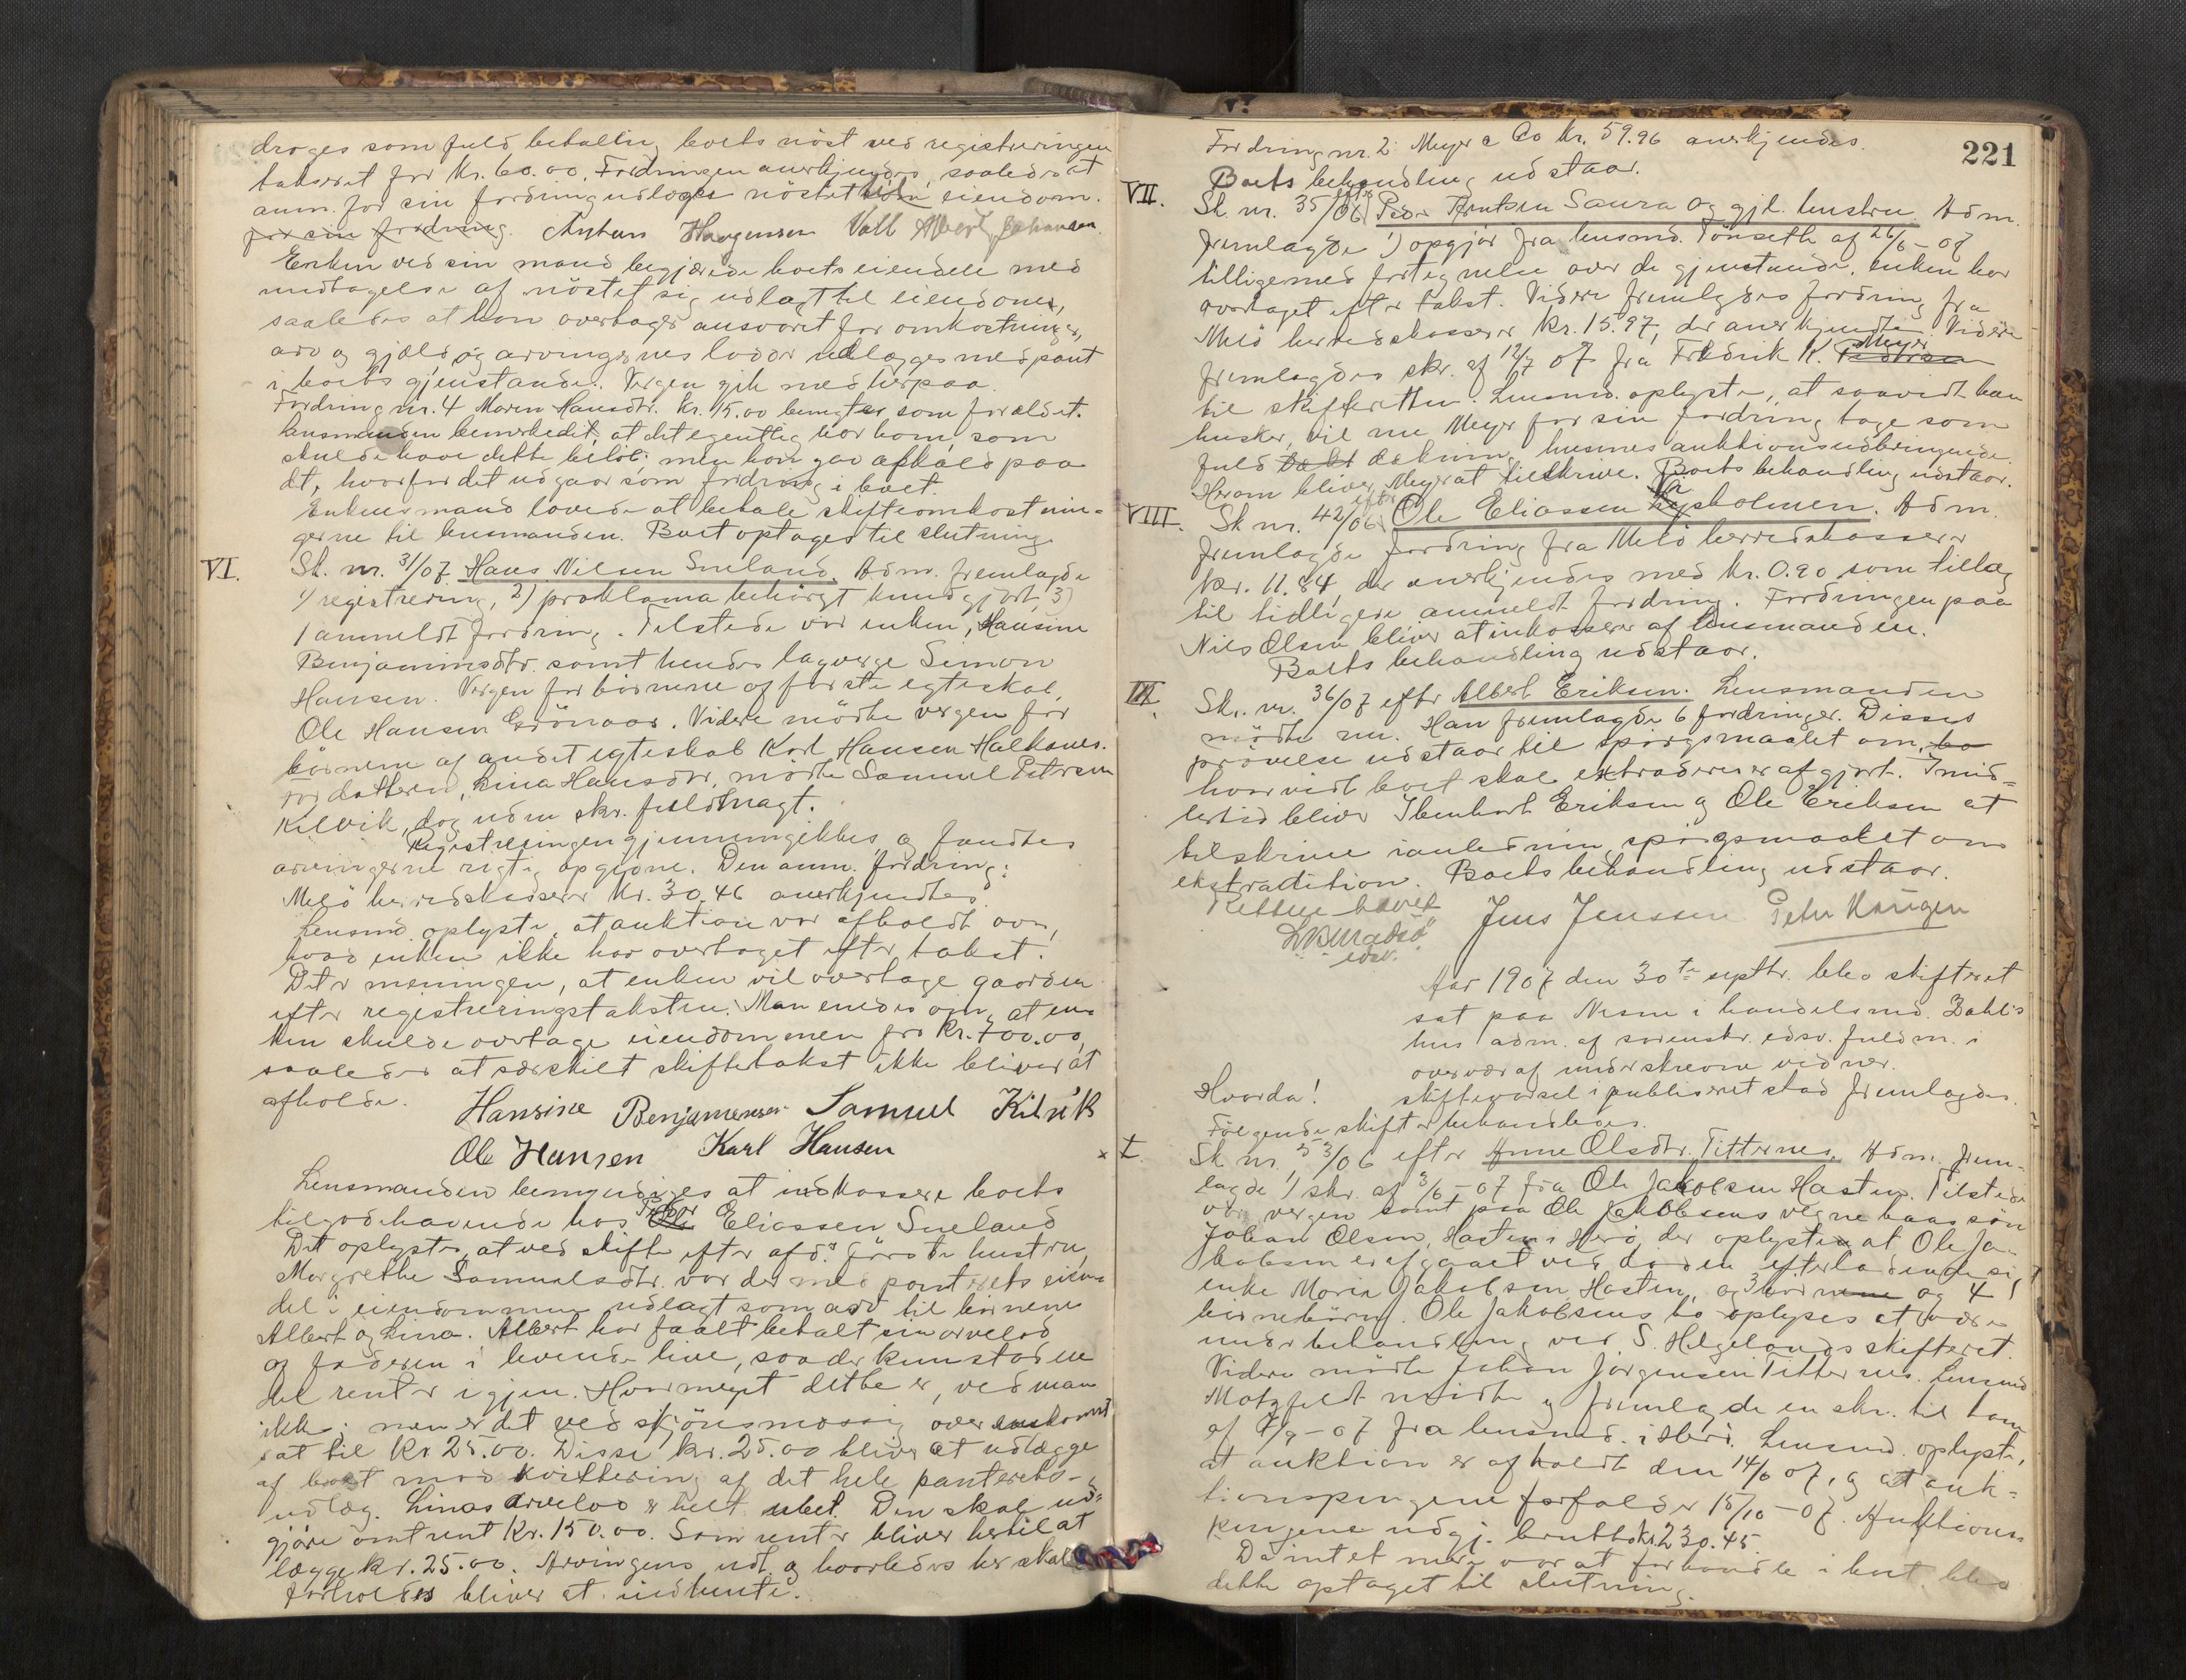 drages som fuld betaling boets nøst ved registreringen
taxeret for Kr. 60.00. Fordringen anerkjendes, saaledes at
anm. for sin fordring udlægges nøstet til eiendom.
for sin fordring. Anthun Haagensen Valb Albert Johansen
Enken ved sin mand begjærede boets eiendele med
undtagelse af nøstet sig udlagt til eiendom,
saaledes at han overtager ansvaret for omkostninger,
arv og gjæld og arvingernes lodder udlægges med pant
i boets gjenstande. Vergen gik med herpaa.
Fordring nr. 4 Maren Hansdtr. Kr. 15.00 benegtes som forældet.
Lensmanden bemerkedit, at det egentlig var ham, som
skulde have dette beløb; men han gav afkald paa
det, hvorfor det udgaar som fordring i boet.
Enkens mand lovede at betale skifteomkostnin-
gerne til lensmanden. Boet optages til slutning.
VI. Sk. nr. 31/07 Hans Nilsen Sneland Adm. fremlagde
1) registrering, 2) proklama behørigt kundgjort, 3)
1 anmeldt fordring. Tilstede var enken, Hansine
Benjaminsdtr. samt hendes lagverge Simon
Hansen. Vergen for børnene af første egteskab,
Ole Hansen Grønaas. Videre mødte vergen for
børnene af andet egteskab Karl Hansen Halhaues.
For datteren, Lina Hansdtr. mødte Samuel Petersen
Kilvik, dog uden skr. fuldmagt.
Registreringen gjennemgikkes og fandtes
arvingerne rigtig opgivne. Den anm. fordring:
Melø herredskasserer Kr. 30.46 anerkjendtes.
Lensmd. oplyste, at auktion var afholdt over,
hvad enken ikke har overtaget efter takst.
Det er meningen, at enken vil overtage gaarden
efter registreringstaksten. Man enedes om, at en-
ken skulde overtage eiendommen for Kr. 700.00,
saaledes at særskilt skiftetakst ikke bliver at
afholde. Hansine Benjamensen Samuel Kilvik
Ole Hansen Karl Hansen
Lensmanden bemyndiges at indkassere boets
tilgodehavende hos Peder Eliassen Sneland
Det oplystes, at ved skifte efter afd.s første hustru,
Margrethe Samuelsdtr. var der med panterets eien-
del i eiendommen udlagt som arv til børnene
Albert og Lina. Albert har faaet betalt sin arvelod
af faderen i levende live, saa der kun staar en
del renter igjen. Hvormeget dette er, ved man
ikke; men er det ved skjønsmæssig overenskomst
sat til Kr 25.00. Disse kr. 25.00 bliver at udlægge
af boet mod kvittering af det hele panterets-
udlæg. Linas arvelod er helt ubet. Den skal ud-
gjøre omtrent Kr. 150.00. Som renter bliver hertil at
lægge kr. 25.00. Arvingens udt. og hvorledes her skal
forholdes bliver at indhente.
221
Fordring nr. 2 Meyer & Co Kr. 59.96 anerkjendes.
Boets behandling udstaar.
VII. Sk. nr. 35/06 efter Peder Arntsen Saura og gjl. hustru Adm.
fremlagde 1) opgjør fra lensmd. Tønseth af 26/6-07
tilligemed fortegnelse over de gjenstande, enken har
overtaget efter takst. Videre fremlagdes fordring fra
Melø herredskasserer Kr. 15.97, der anerkjendtes. Videre
fremlagdes skr. af 12/7 07 fra Fredrik K. Meyer
til skifteretten. Lensmd. oplyste, at saavidt han
husker, vil nu Meyer for sin fordring tage som
fuld dækning husenes auktionsudbringende.
Herom bliver Meyer at tilskrive. Boets behandling udstaar.
VIII. Sk nr. 42/06 efter Ole Eliassen holmen. Adm.
fremlagde fordring fra Melø herredskasserer
Kr. 11.84, der anerkjendes med Kr. 0.90 som tillæg
til tidligere anmeldt fordring. Fordringen paa
Nils Olsen bliver at inkassere af lensmanden.
Boets behandling udstaar.
IX. Sk. nr. 36/07 efter Albert Eriksen. Lensmanden
mødte nu. Han fremlagde 6 fordringer. Disses
prøvelse udstaar til spørgsmaalet om, bo
hvorvidt boet skal extraderes er afgjort. Imid-
lertid bliver Ibenhart Eriksen og Ole Eriksen at
tilskrive i anledning spørgsmaalet om
ekstradition. Boets behandling udstaar.
Retten hævet
Jens Jenssen Peter
edsv.
Aar 1907 den 30te septbr. blev skifteret
sat paa Nesna i handelsmd. Dahl's
hus adm. af sorenskr. edsv. fuldm. i
overvær af underskrevne vidner.
Hvorda! Skiftevarsel i publiseret stand fremlagdes.
Følgende skifter behandledes.
x I. Sk nr. 53/06 efter Anne Olsdtr. Titternes. Adm. frem-
lagde 1) skr. af 3/6-07 fra Ole Jakobsen Hasten. Tilstede
var vergen samt paa Ole Jakobsens vegne hans søn
Johan Olsen, Hasten i Herø, der oplyste at Ole Ja-
kobsen er afgaaet ved døden efterladende sig
enke Maria Jakobsen Hasten, og 3 børn og 4
barnebørn. Ole Jakobsens bo oplyses at være
under behandling ved S. Helgelands skifteret.
Videre mødte Johan Jørgensen Titternes. Lensmd
Motzfeldt mødte og fremlagde en skr. til ham
af 4/9-07 fra lensmd. i Herø. Lensmd. oplyste,
at auktion er afholdt den 14/6 07, og at auk-
tionspengene forfalder 15/10-07. Auktions-
pengene udgj. brutto kr. 230.45.
Da intet mere var at forhandle i boet blev
dette optaget til slutning.